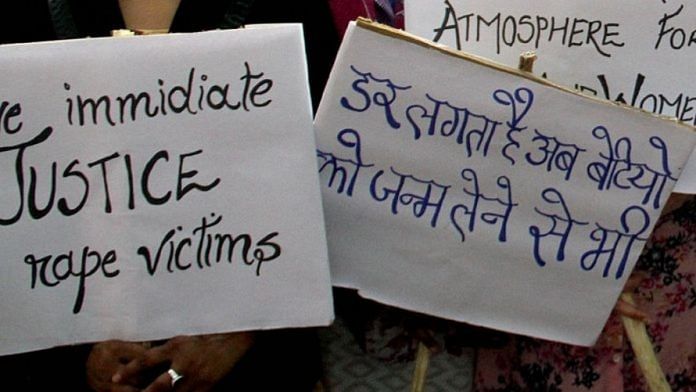 e immidiate
JUSTICE
rape victims
डर लगता है अब बेटियो
को जन्म लेने से भी
ATMOSPHERE FOR
WOMEN